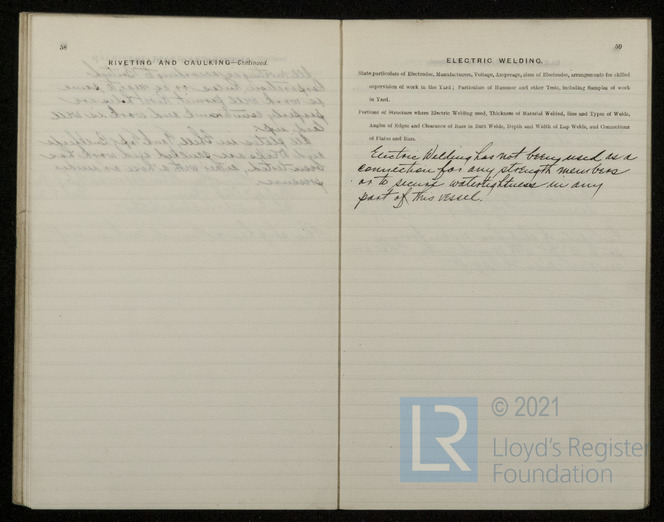 58
RIVETING AND CAULKING—Continued.
59
ELECTRIC WELDING.
State particulars of Electrodes, Manufacturers, Voltage, Amperage, sizes of Electrodes, arrangements for skilled
supervision of work in the Yard; Particulars of Hammer and other Tests, including Samples of work
in Yard.
Portions of Structure where Electric Welding used, Thickness of Material Welded, Size and Types of Welds,
Angles of Edges and Clearance of Bars in Butt Welds, Depth and Width of Lap Welds, and Connections
of Plates and Bars.
Electric Welding has not being used as a
connection for any strength members
or to secure watertightness in any
part of this vessel.
LR
© 2021
Lloyd's Register
Foundation